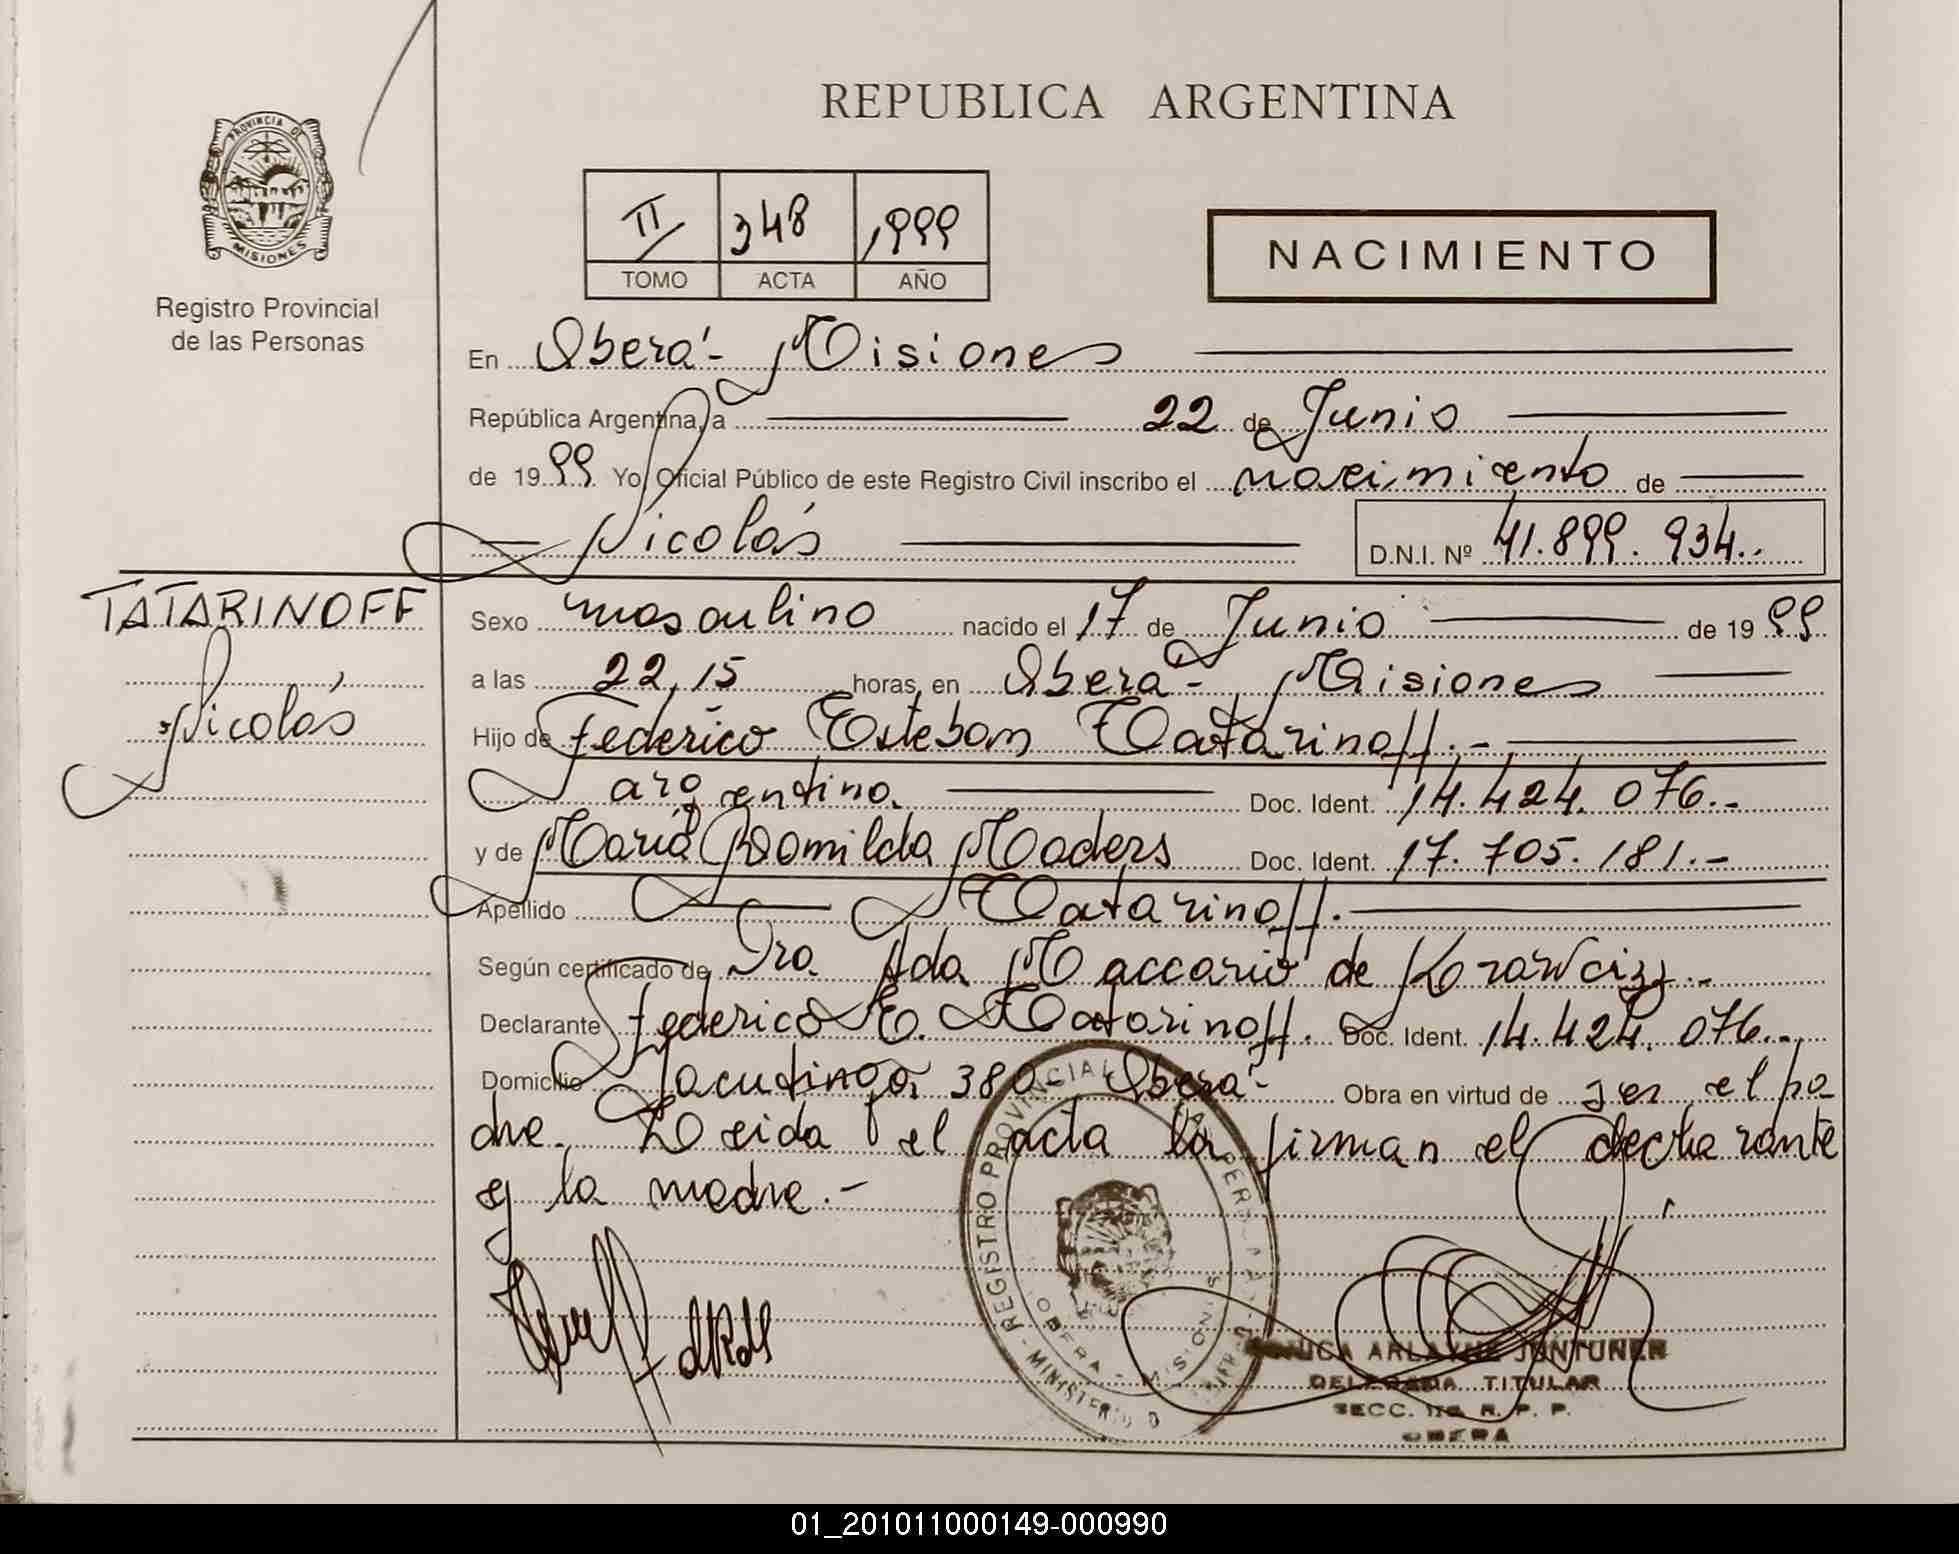 PROVINCIA DE
MISIONES
Registro Provincial
de las Personas
REPUBLICA ARGENTINA
II 348 1999
TOMO ACTA AÑO
NACIMIENTO
En Oberá- Misiones
República Argentina, a 22 de Junio
de 1999 Yo, Oficial Público de este Registro Civil inscribo el nacimiento de
Nicolás D.N.I. Nº 41.899.934.-
TATARINOFF
Nicolás
Sexo masculino nacido el 17 de Junio de 1999
a las 22,15 horas, en Oberá- Misiones
Hijo de Federico Esteban Tatarinoff.-
argentino. Doc. Ident. 14.424.076.-
y de María Romilda Maders Doc. Ident. 17.705.181.-
Apellido Tatarinoff.
Según certificado de Dra. Ada Maccario de
Declarante Federico E. Tatarinoff. Doc. Ident. 14.424.076.-
Domicilio Jacutinga 380- Oberá- Obra en virtud de ser el pa-
dre. Leida el acta la firman el declarante
y la madre.-
REGISTRO PROVINCIAL
MINISTERIO D
OBERA - MISIONES
ARLAYNE JUNTUNEN
DELEGADA TITULAR
SECC. R. P. P.
OBERA
01_201011000149-000990